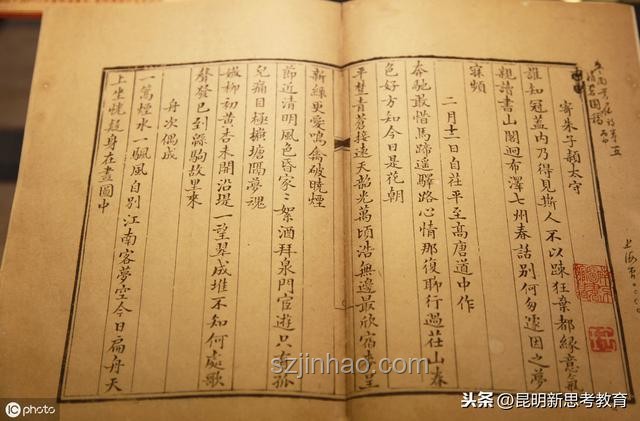 寄朱子韻太守
誰知冠蓋內乃得見斯人不以疎狂棄都緣意氣
親讀書山閣迥布澤七州春話別何匆遽因之夢
寐頻
二月十二日自茌平至高唐道中作
奔馳敢惜馬蹄遙驛路心情那復聊行過茌山春
色好方知今日是花朝
平楚青蒼接遠天韶光萬頃浩無邊最欣宿麥呈
新綠更愛鳴禽破曉煙
節近清明風色昏家々絮酒拜泉門宦遊只有孤
兒痛目極橫塘隔夢魂
嫩柳初黃杏未開沿堤一望翠成堆不知何處歌
聲發已到緜駒故里來
舟次偶成
一篙煙水一颿風自別江南客夢空今日扁舟天
上坐恍疑身在畫圖中
szjinhao.com
iC photo
头条 @昆明新思考教育